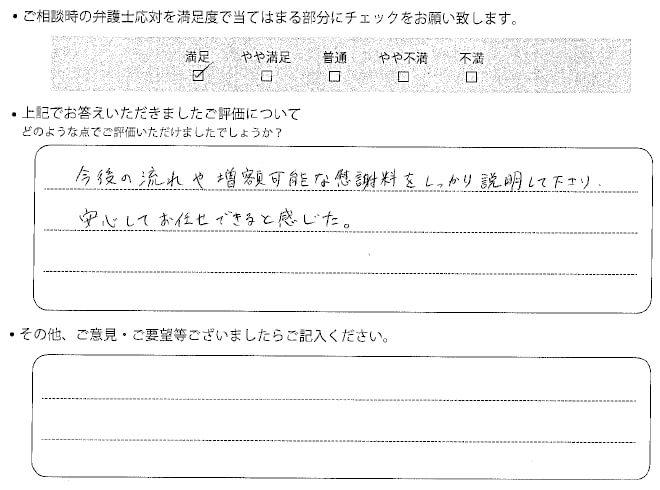 ・ご相談時の弁護士応対を満足度で当てはまる部分にチェックをお願い致します。
満足 やや満足 普通 やや不満 不満
☑ □ □ □ □
・上記でお答えいただきましたご評価について
どのような点でご評価いただけましたでしょうか？
今後の流れや増額可能な慰謝料をしっかり説明して下さり、
安心してお任せできると感じた。
・その他、ご意見・ご要望等ございましたらご記入ください。